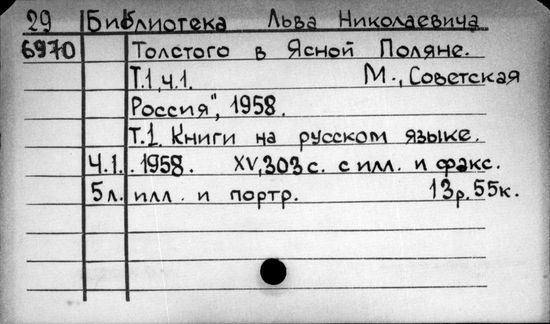 29 Библиотека Льва Николаевича
6970 Толстого в Ясной Поляне.
Т.1,ч.1. М., Советская
Россия", 1958.
Т.1. Книги на русском языке.
Ч.1. . 1958. XV,303с. с илл. и факс.
5л. илл. и портр. 13р.55к.